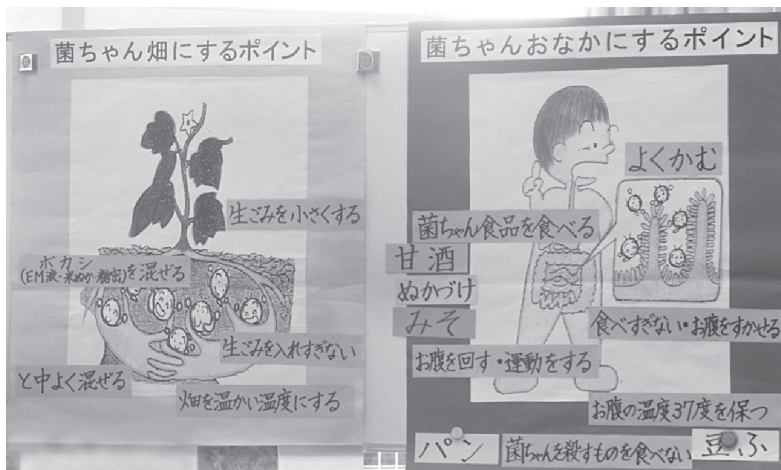 菌ちゃん畑にするポイント
生ごみを小さくする
ボカシ
(EM液・米ぬか・糖蜜)を混ぜる
生ごみを入れすぎない
と中よく混ぜる
畑を温かい温度にする
菌ちゃんおなかにするポイント
よくかむ
菌ちゃん食品を食べる
甘酒
ぬかづけ
みそ
食べすぎない・お腹をすかせる
お腹を回す・運動をする
お腹の温度37度を保つ
パン
菌ちゃんを殺すものを食べない
豆ふ